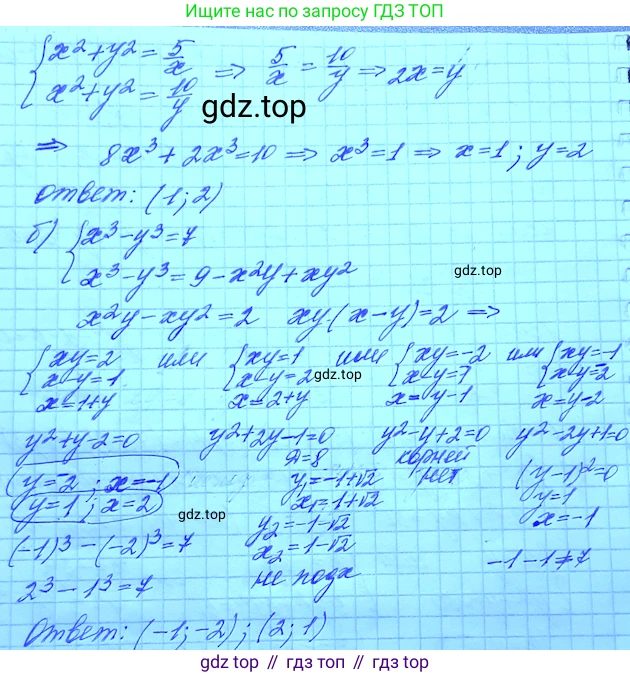 Ищите нас по запросу ГДЗ ТОП
{x²+y²=5/x
x²+y²=10/y ⇒ 5/x = 10/y ⇒ 2x=y
gdz.top
⇒ 8x³+2x³=10 ⇒ x³=1 ⇒ x=1; y=2
ответ: (1; 2)
б) {x³-y³=7
x³-y³=9-x²y+xy²
gdz.top
x²y-xy²=2 xy(x-y)=2 ⇒
{xy=2 или {xy=1 или {xy=-2 или {xy=-1
x-y=1 x-y=2 x-y=7 x-y=2
gdz.top
x=1+y x=2+y x=y-1 x=y-2
y²+y-2=0 y²+2y-1=0 y²-y+2=0 y²-2y+1=0
Д=8 корней нет (y-1)²=0
y=-2; x=-1 y₁=-1+√2 y=1
y=1; x=2 x₁=1+√2 x=-1
gdz.top
(-1)³-(-2)³=7 y₂=-1-√2
x₂=1-√2 -1-1≠7
2³-1³=7 не подх
Ответ: (-1;-2); (2; 1)
gdz top // гдз топ // гдз top // gdz топ